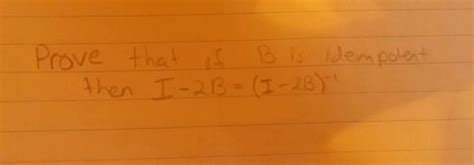 Prove that if B is idempotent
then I-2B = (I-2B)⁻¹